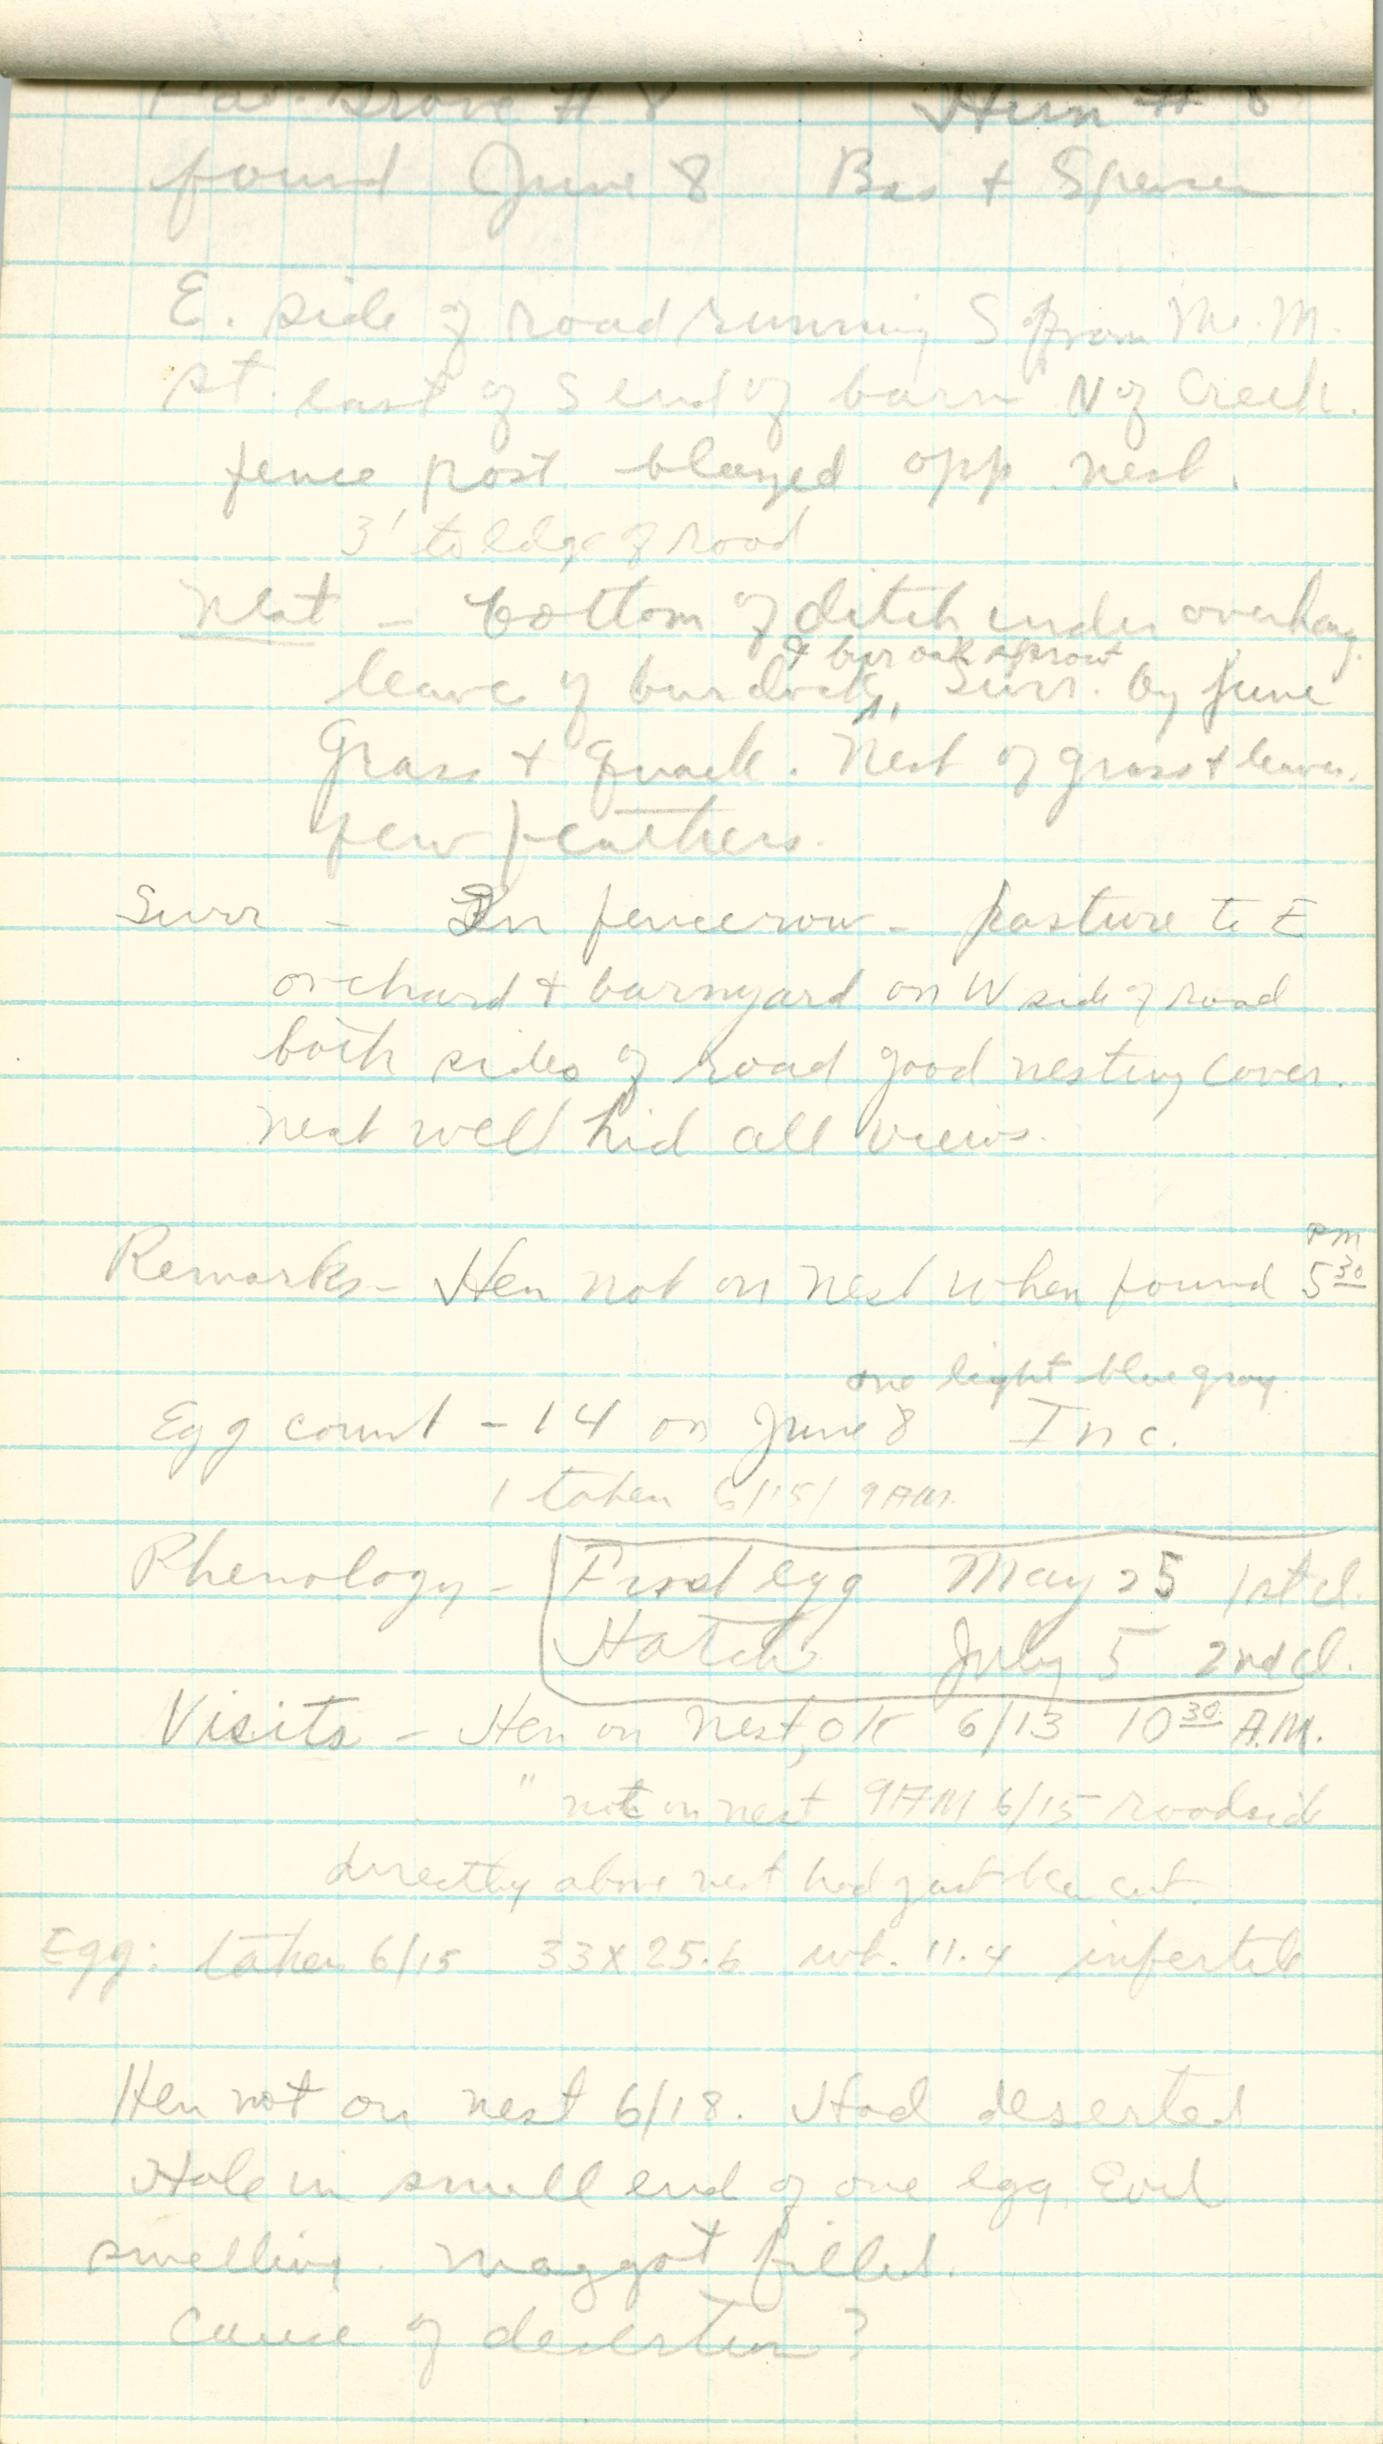 Fav. Grove # 8 Hun # 8
found June 8 Bas + Spencer
E. side of road running S from Mc.M.
pt. east of S end of barn N of Creek.
fence post blazed opp. nest.
3' to edge of road
Nest - bottom of ditch under overhang.
& bur oak sprout
leave of burdock, Surr. by June
Grass + Quack. Nest of grass + leaves.
few feathers.
Surr - In fencerow - pasture to E
orchard + barnyard on W side of road
both sides of road good nesting cover.
nest well hid all views.
Remarks - Hen not on nest when found 5 30 PM
one light blue gray.
Egg count - 14 on June 8 Inc.
1 taken 6/15/ 9 AM.
Phenology - First egg May 25 1st cl.
Hatch July 5 2nd cl.
Visits - Hen on nest, OK 6/13 10 30 A.M.
" not on nest 9 AM 6/15 roadside
directly above nest had just been cut.
Egg: taken 6/15 33 x 25.6 wt. 11.4 infertile
Hen not on nest 6/18. Had deserted
Hole in small end of one egg. Evil
smelling. Maggot filled.
Cause of desertion?